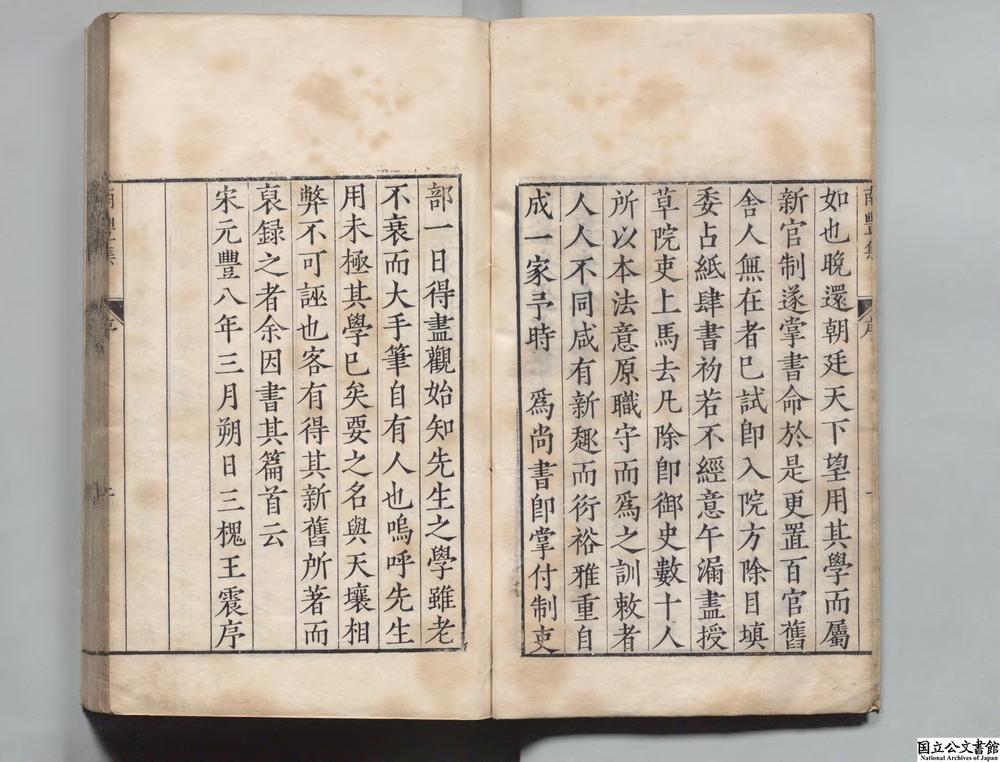 南豐集
序
如也晚還朝廷天下望用其學而屬
新官制遂掌書命於是更置百官舊
舍人無在者已試卽入院方除目填
委占紙肆書初若不經意午漏盡授
草院吏上馬去凡除郎御史數十人
所以本法意原職守而爲之訓敕者
人人不同咸有新趣而衍裕雅重自
成一家予時　爲尚書郎掌付制吏
部一日得盡觀始知先生之學雖老
不衰而大手筆自有人也嗚呼先生
用未極其學已矣要之名與天壤相
弊不可誣也客有得其新舊所著而
裒録之者余因書其篇首云
宋元豐八年三月朔日三槐王震序
南豐集
序
国立公文書館
National Archives of Japan